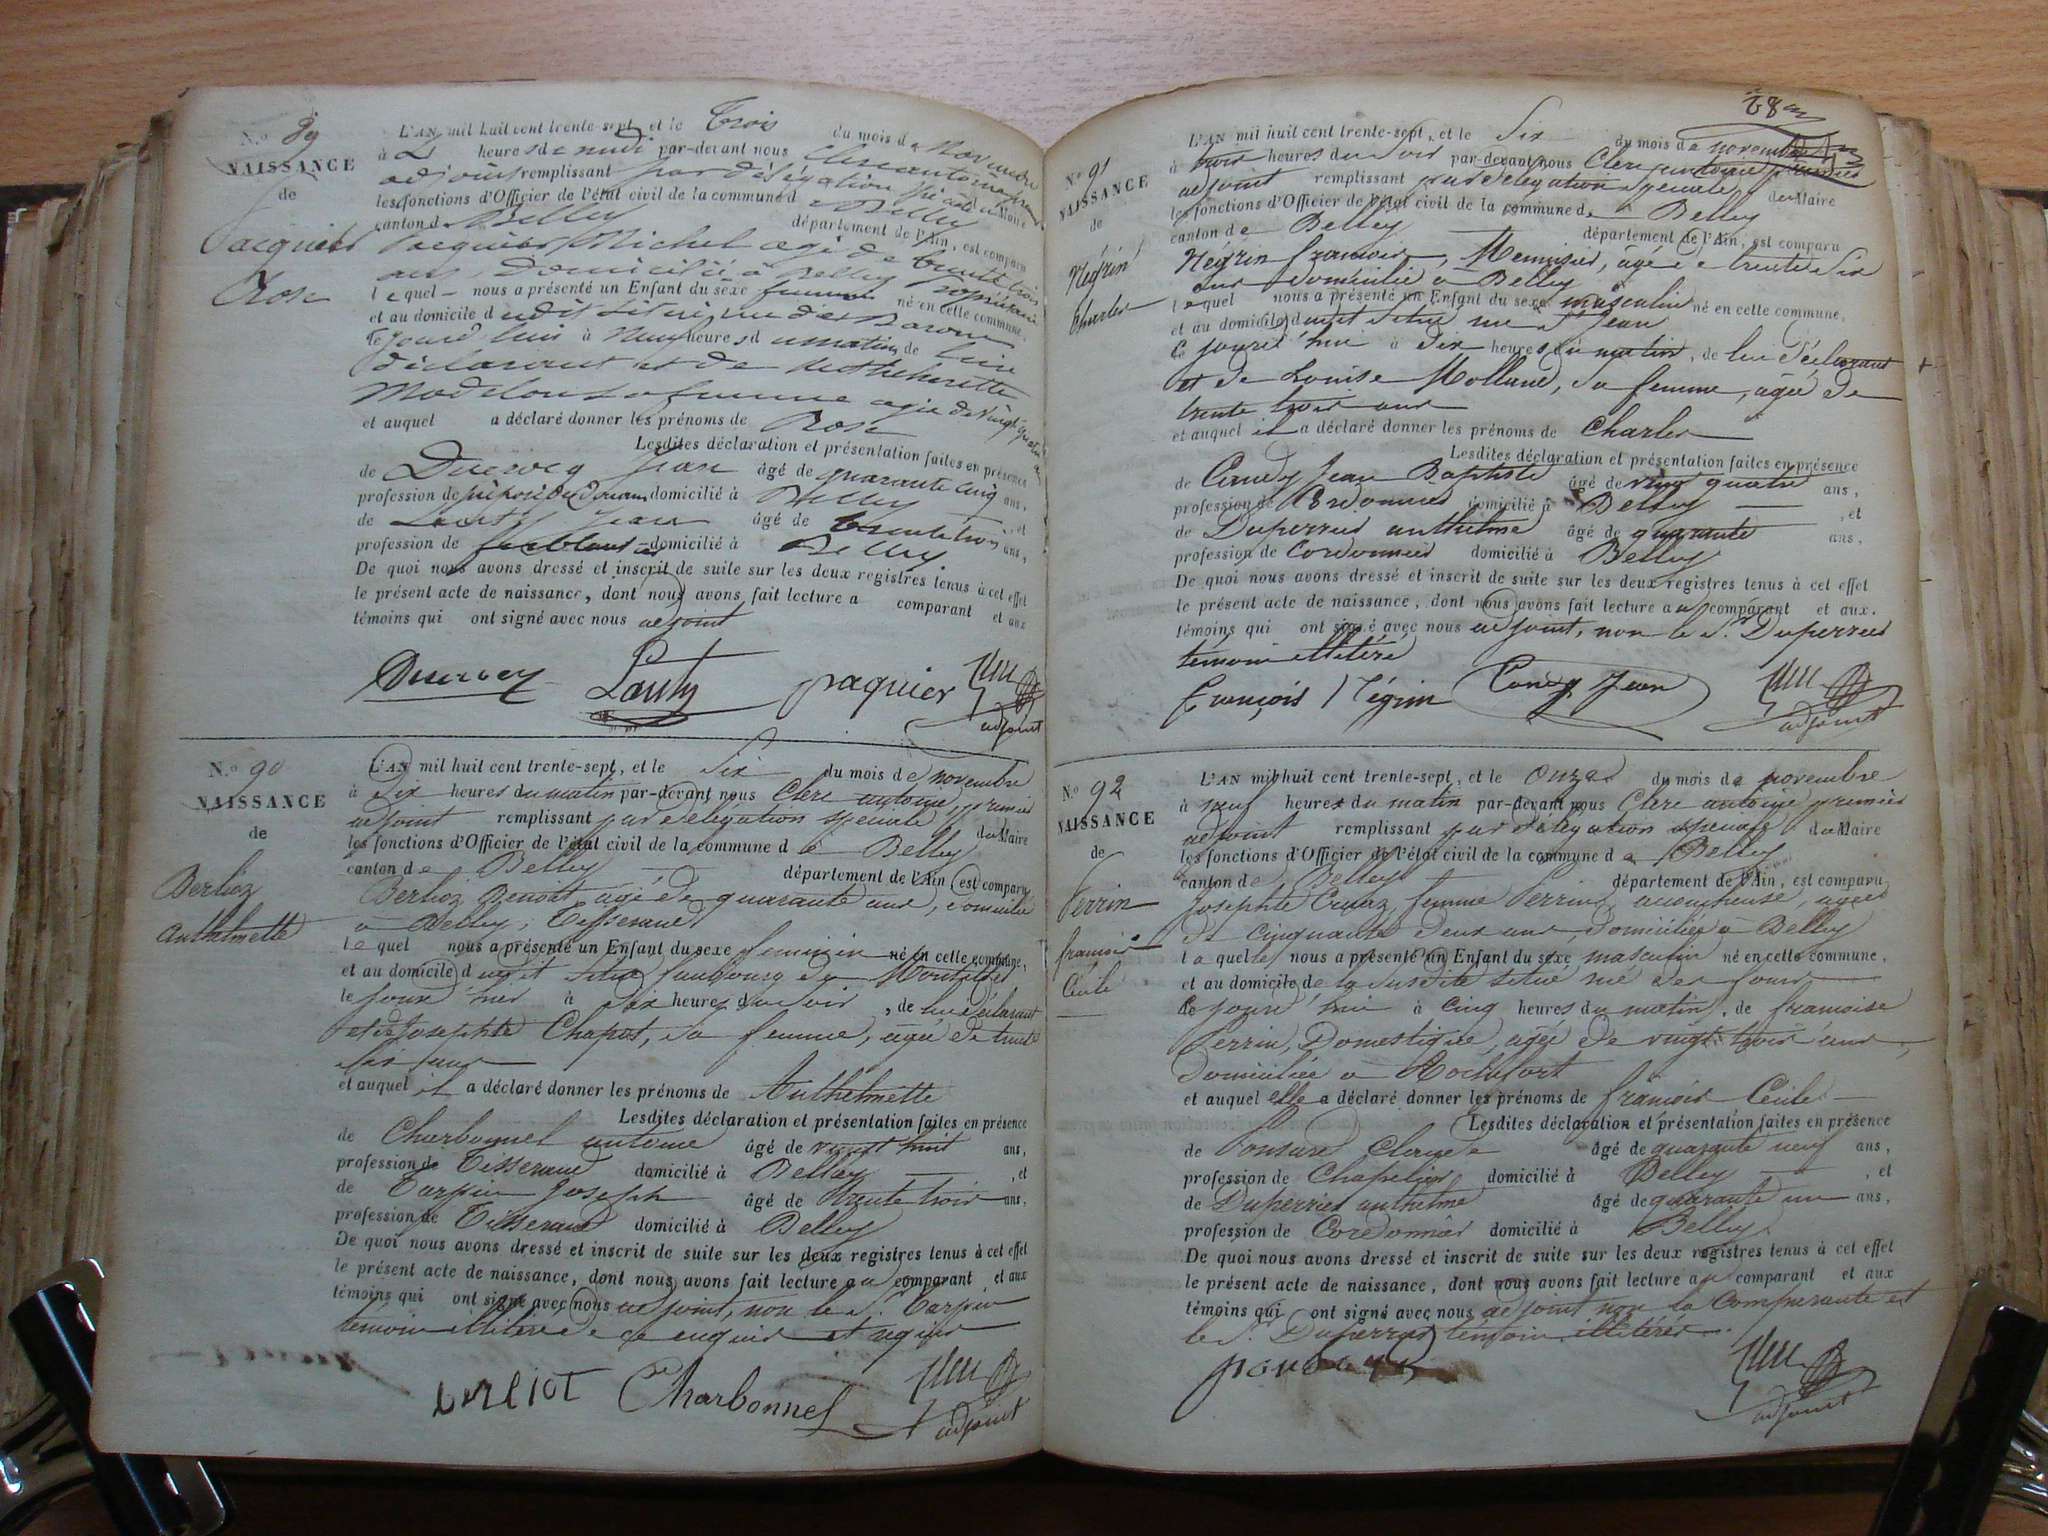 N.o 89
NAISSANCE
de
Jacquier
Rose
L'AN mil huit cent trente-sept, et le Trois du mois de Novembre
à heures de midi par-devant nous Clerc antoine premier
adjoint remplissant par délégation spéciale du Maire
les fonctions d'Officier de l'état civil de la commune de Belley
canton de Belley département de l'Ain, est comparu
Jacquier Michel agé de trente trois
ans, Domicilié à Belley
lequel nous a présenté un Enfant du sexe né en cette commune,
et au domicile dudit situé rue des Barons
le jourd'hui à Neuf heures du matin de lui
déclarant et de
Madelon sa femme agée de vingt quatre ans
et auquel a déclaré donner les prénoms de Rose
Lesdites déclaration et présentation faites en présence
de Ducrocq Jean âgé de quarante cinq ans,
profession de préposé des Douanes domicilié à Belley , et
de Jean âgé de trente trois ans,
profession de ferblantier domicilié à Belley
De quoi nous avons dressé et inscrit de suite sur les deux registres tenus à cet effet
le présent acte de naissance, dont nous avons fait lecture a comparant et aux
témoins qui ont signé avec nous adjoint
jacquier
adjoint
N.o 90
NAISSANCE
de
Berlioz
Anthelmette
L'AN mil huit cent trente-sept, et le Six du mois de novembre
à Dix heures du matin par-devant nous Clerc antoine, premier
adjoint remplissant par délégation spéciale du Maire
les fonctions d'Officier de l'état civil de la commune de Belley
canton de Belley département de l'Ain, est comparu
Berlioz Benoit âgé de quarante ans, domicilié
à Belley, Tisserand
lequel nous a présenté un Enfant du sexe feminin né en cette commune,
et au domicile dudit situé faubourg du
le jour d'hier à Six heures du soir, de lui déclarant
et de Josephte Chapot, sa femme, agée de trente
six ans
et auquel il a déclaré donner les prénoms de Anthelmette
Lesdites déclaration et présentation faites en présence
de Charbonnel antoine âgé de vingt huit ans,
profession de Tisserand domicilié à Belley , et
de Tarpin Joseph âgé de trente trois ans,
profession de Tisserand domicilié à Belley
De quoi nous avons dressé et inscrit de suite sur les deux registres tenus à cet effet
le présent acte de naissance, dont nous avons fait lecture au comparant et aux
témoins qui ont signé avec nous adjoint, non le S. Tarpin
témoin illiteré de ce enquis et requis
berliot Charbonnel
adjoint
28
N.o 91
NAISSANCE
de
Négrin
Charles
L'AN mil huit cent trente-sept, et le Six du mois de novembre
à trois heures du soir par-devant nous Clerc antoine premier
adjoint remplissant par délégation spéciale du Maire
les fonctions d'Officier de l'état civil de la commune de Belley
canton de Belley département de l'Ain, est comparu
Négrin francois, Menuisier, agé de trente six
ans domicilié à Belley
lequel nous a présenté un Enfant du sexe masculin né en cette commune,
et au domicile dudit situé rue St Jean
le jourd'hui à dix heures du matin, de lui déclarant
et de Louise Molland, sa femme, agée de
trente trois ans
et auquel il a déclaré donner les prénoms de Charles
Lesdites déclaration et présentation faites en présence
de Jean Baptiste âgé de vingt quatre ans,
profession de Cordonnier domicilié à Belley , et
de Duperrier anthelme âgé de quarante ans,
profession de Cordonnier domicilié à Belley
De quoi nous avons dressé et inscrit de suite sur les deux registres tenus à cet effet
le présent acte de naissance, dont nous avons fait lecture au comparant et aux
témoins qui ont signé avec nous adjoint, non le S.r Duperrier
témoin illitéré
François Négrin Jean
adjoint
N.o 92
NAISSANCE
de
Perrin
francois
Cécile
L'AN mil huit cent trente-sept, et le Onze du mois de novembre
à neuf heures du matin par-devant nous Clerc antoine premier
adjoint remplissant par délégation spéciale du Maire
les fonctions d'Officier de l'état civil de la commune de Belley
canton de Belley département de l'Ain, est comparu
Josephte femme Perrin, acoucheuse, agée
de cinquante deux ans, domiciliée à Belley
laquelle nous a présenté un Enfant du sexe masculin né en cette commune,
et au domicile de la susdite situé rue des fours
le jourd'hui à cinq heures du matin, de francoise
Perrin, Domestique, agée de vingt trois ans,
domiciliée à Rochefort
et auquel elle a déclaré donner les prénoms de francois Cécile
Lesdites déclaration et présentation faites en présence
de Claude âgé de quarante neuf ans,
profession de Chapelier domicilié à Belley , et
de Duperrier anthelme âgé de quarante un ans,
profession de Cordonnier domicilié à Belley
De quoi nous avons dressé et inscrit de suite sur les deux registres tenus à cet effet
le présent acte de naissance, dont nous avons fait lecture a comparant et aux
témoins qui ont signé avec nous adjoint non la comparante et
le S. Duperrier témoin illitérés
adjoint